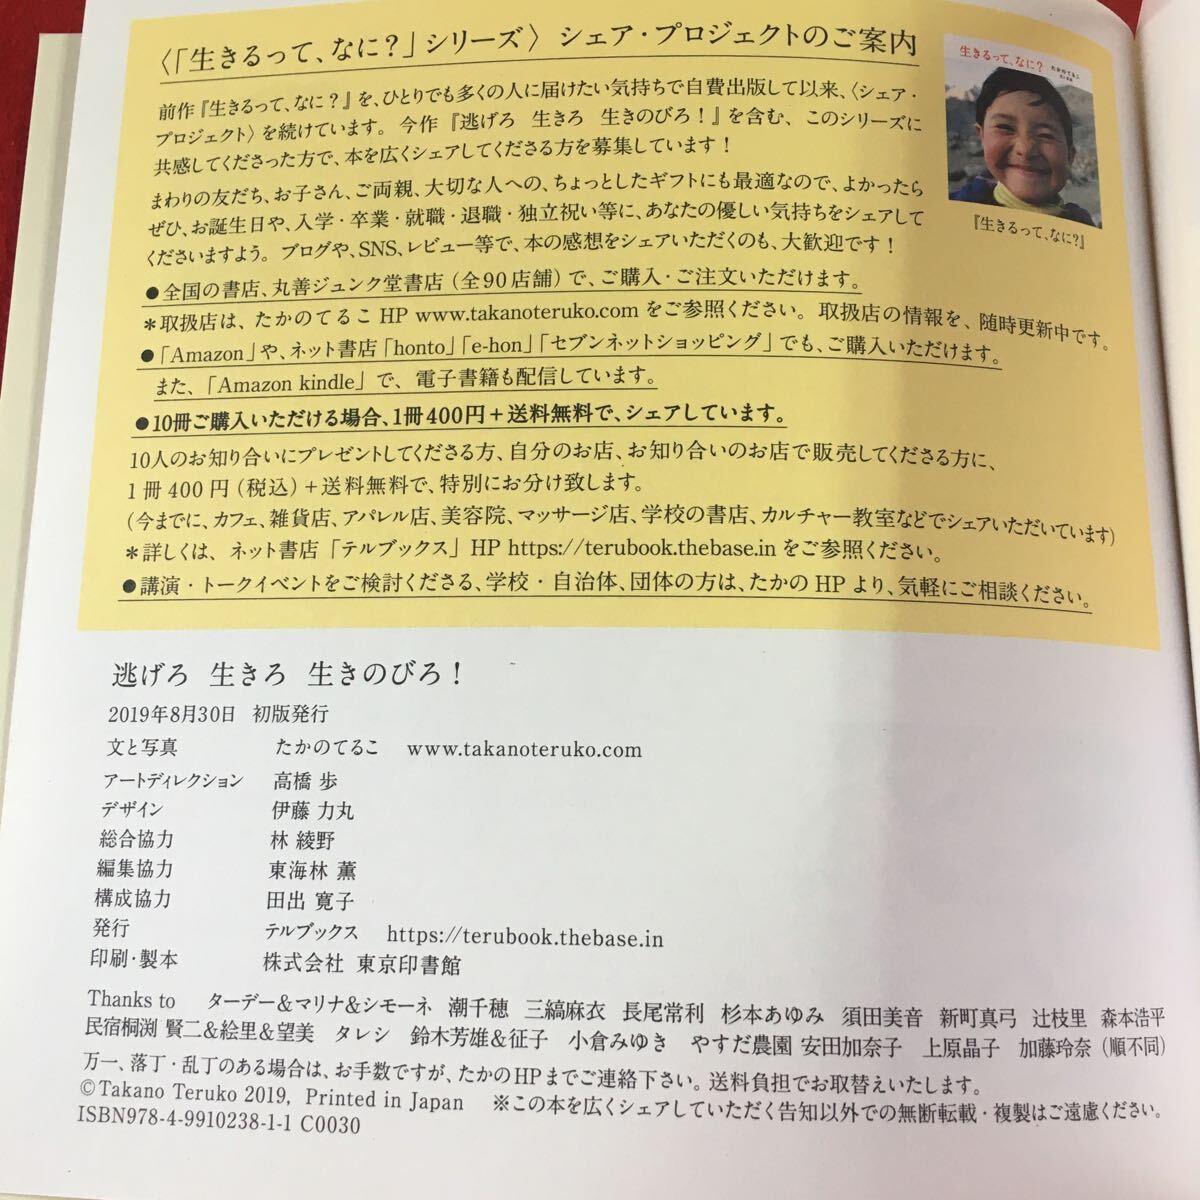 〈「生きるって、なに？」シリーズ〉 シェア・プロジェクトのご案内
前作『生きるって、なに？』を、ひとりでも多くの人に届けたい気持ちで自費出版して以来、〈シェア・
プロジェクト〉を続けています。今作『逃げろ 生きろ 生きのびろ！』を含む、このシリーズに
共感してくださった方で、本を広くシェアしてくださる方を募集しています！
まわりの友だち、お子さん、ご両親、大切な人への、ちょっとしたギフトにも最適なので、よかったら
ぜひ、お誕生日や、入学・卒業・就職・退職・独立祝い等に、あなたの優しい気持ちをシェアして
くださいますよう。ブログや、SNS、レビュー等で、本の感想をシェアいただくのも、大歓迎です！
生きるって、なに？
たかのてるこ
『生きるって、なに？』
●全国の書店、丸善ジュンク堂書店（全90店舗）で、ご購入・ご注文いただけます。
＊取扱店は、たかのてるこ HP www.takanoteruko.com をご参照ください。取扱店の情報を、随時更新中です。
●「Amazon」や、ネット書店「honto」「e-hon」「セブンネットショッピング」でも、ご購入いただけます。
また、「Amazon kindle」で、電子書籍も配信しています。
●10冊ご購入いただける場合、1冊400円＋送料無料で、シェアしています。
10人のお知り合いにプレゼントしてくださる方、自分のお店、お知り合いのお店で販売してくださる方に、
1冊400円（税込）＋送料無料で、特別にお分け致します。
（今までに、カフェ、雑貨店、アパレル店、美容院、マッサージ店、学校の書店、カルチャー教室などでシェアいただいています）
＊詳しくは、ネット書店「テルブックス」HP https://terubook.thebase.in をご参照ください。
●講演・トークイベントをご検討くださる、学校・自治体、団体の方は、たかの HP より、気軽にご相談ください。
逃げろ 生きろ 生きのびろ！
2019年8月30日 初版発行
文と写真 たかのてるこ www.takanoteruko.com
アートディレクション 高橋 歩
デザイン 伊藤 力丸
総合協力 林 綾野
編集協力 東海林 薫
構成協力 田出 寛子
発行 テルブックス https://terubook.thebase.in
印刷・製本 株式会社 東京印書館
Thanks to ターデー＆マリナ＆シモーネ 潮千穂 三縞麻衣 長尾常利 杉本あゆみ 須田美音 新町真弓 辻枝里 森本浩平
民宿桐渕 賢二＆絵里＆望美 タレシ 鈴木芳雄＆征子 小倉みゆき やすだ農園 安田加奈子 上原晶子 加藤玲奈（順不同）
万一、落丁・乱丁のある場合は、お手数ですが、たかのHPまでご連絡下さい。送料負担でお取替えいたします。
©Takano Teruko 2019, Printed in Japan ※この本を広くシェアしていただく告知以外での無断転載・複製はご遠慮ください。
ISBN978-4-9910238-1-1 C0030